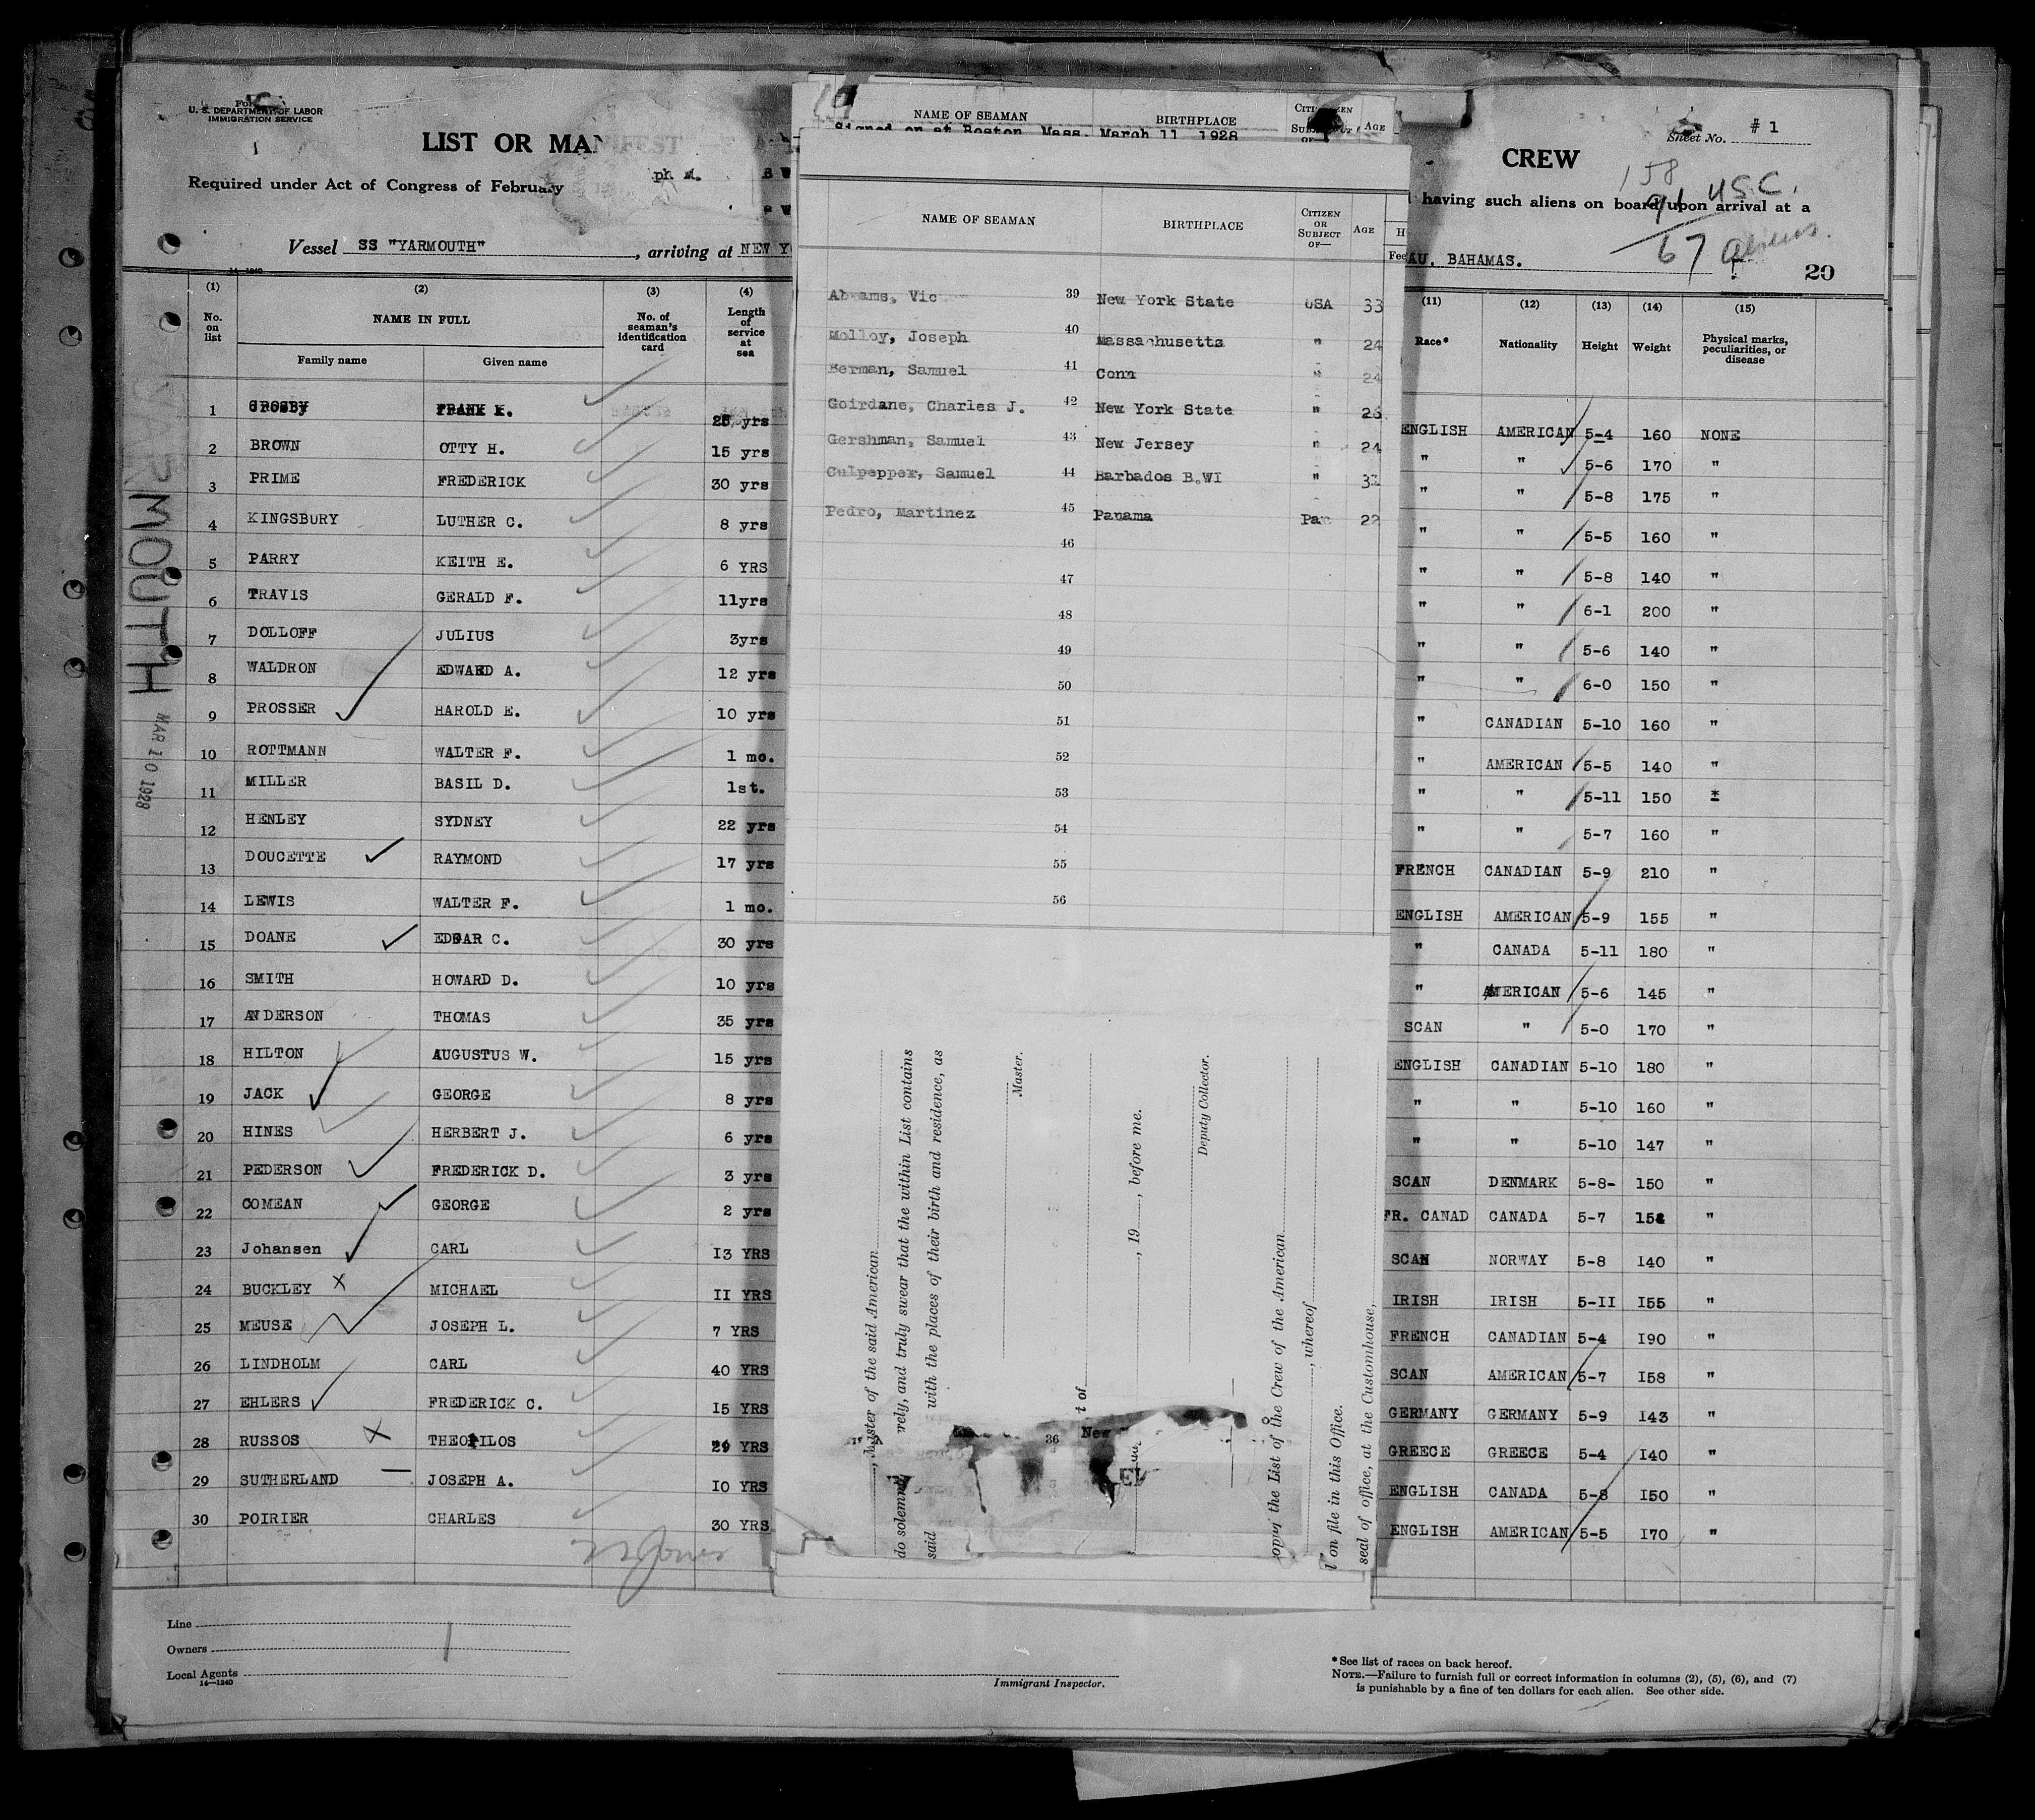 U. S. DEPARTMENT OF LABOR
IMMIGRATION SERVICE
LIST OR MANIFEST
CREW
Sheet No. # 1
158
91 U.S.C.
67 aliens.
Required under Act of Congress of February
having such aliens on board upon arrival at a
Vessel SS "YARMOUTH", arriving at NEW Y
BAHAMAS.
20
14-1240
(1) (2) (3) (4)
No. on list
NAME IN FULL
Family name Given name
No. of seaman's identification card
Length of service at sea
(11) (12) (13) (14) (15)
Race* Nationality Height Weight Physical marks, peculiarities, or disease
1 CROSBY FRANK K. 25 yrs ENGLISH AMERICAN 5-4 160 NONE
2 BROWN OTTY H. 15 yrs " " 5-6 170 "
3 PRIME FREDERICK 30 yrs " " 5-8 175 "
4 KINGSBURY LUTHER C. 8 yrs " " 5-5 160 "
5 PARRY KEITH E. 6 YRS " " 5-8 140 "
6 TRAVIS GERALD F. 11yrs " " 6-1 200 "
7 DOLLOFF JULIUS 3yrs " " 5-6 140 "
8 WALDRON EDWARD A. 12 yrs " " 6-0 150 "
9 PROSSER HAROLD E. 10 yrs " CANADIAN 5-10 160 "
10 ROTTMANN WALTER F. 1 mo. " AMERICAN 5-5 140 "
11 MILLER BASIL D. 1st. " " 5-11 150 *
12 HENLEY SYDNEY 22 yrs " " 5-7 160 "
13 DOUCETTE RAYMOND 17 yrs FRENCH CANADIAN 5-9 210 "
14 LEWIS WALTER F. 1 mo. ENGLISH AMERICAN 5-9 155 "
15 DOANE EDGAR C. 30 yrs " CANADA 5-11 180 "
16 SMITH HOWARD D. 10 yrs " AMERICAN 5-6 145 "
17 ANDERSON THOMAS 35 yrs SCAN " 5-0 170 "
18 HILTON AUGUSTUS W. 15 yrs ENGLISH CANADIAN 5-10 180 "
19 JACK GEORGE 8 yrs " " 5-10 160 "
20 HINES HERBERT J. 6 yrs " " 5-10 147 "
21 PEDERSON FREDERICK D. 3 yrs SCAN DENMARK 5-8- 150 "
22 COMEAN GEORGE 2 yrs FR. CANAD CANADA 5-7 "
23 Johansen CARL I3 YRS SCAN NORWAY 5-8 I40 "
24 BUCKLEY X MICHAEL II YRS IRISH IRISH 5-II I55 "
25 MEUSE JOSEPH L. 7 YRS FRENCH CANADIAN 5-4 I90 "
26 LINDHOLM CARL 40 YRS SCAN AMERICAN 5-7 I58 "
27 EHLERS FREDERICK C. I5 YRS GERMANY GERMANY 5-9 I43 "
28 RUSSOS X THEOPILOS 29 YRS GREECE GREECE 5-4 I40 "
29 SUTHERLAND JOSEPH A. IO YRS ENGLISH CANADA 5-8 I50 "
30 POIRIER CHARLES 30 YRS ENGLISH AMERICAN 5-5 I70 "
NAME OF SEAMAN BIRTHPLACE AGE
Signed on at Boston, Mass. March 11 1928
NAME OF SEAMAN BIRTHPLACE CITIZEN OR SUBJECT OF— AGE
Abrams, Vic 39 New York State USA 33
Molloy, Joseph 40 Massachusetts " 24
Berman, Samuel 41 Conn " 24
Goirdane, Charles J. 42 New York State " 26
Gershman, Samuel 43 New Jersey " 24
Culpepper, Samuel 44 Barbados B.WI "
Pedro, Martinez 45 Panama Pan 22
46
47
48
49
50
51
52
53
54
55
56
, Master of the said American
do solemnly, sincerely, and truly swear that the within List contains
said with the places of their birth and residence, as
Master.
, 19 , before me.
Deputy Collector.
copy the List of the Crew of the American
, whereof
on file in this Office.
seal of office, at the Customhouse,
36 New
YARMOUTH
MAR 10 1928
Line
Owners
Local Agents
14—1240
Immigrant Inspector.
*See list of races on back hereof.
NOTE.—Failure to furnish full or correct information in columns (2), (5), (6), and (7)
is punishable by a fine of ten dollars for each alien. See other side.